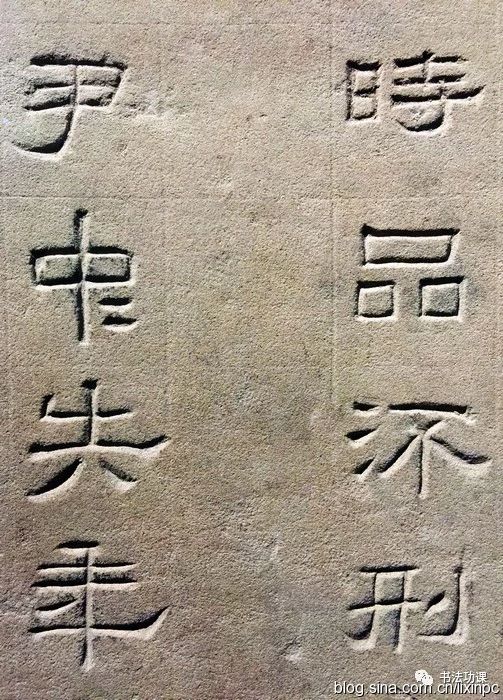 時品不刑
尹中失年
书法功课
blog.sina.com.cn/lixinpc